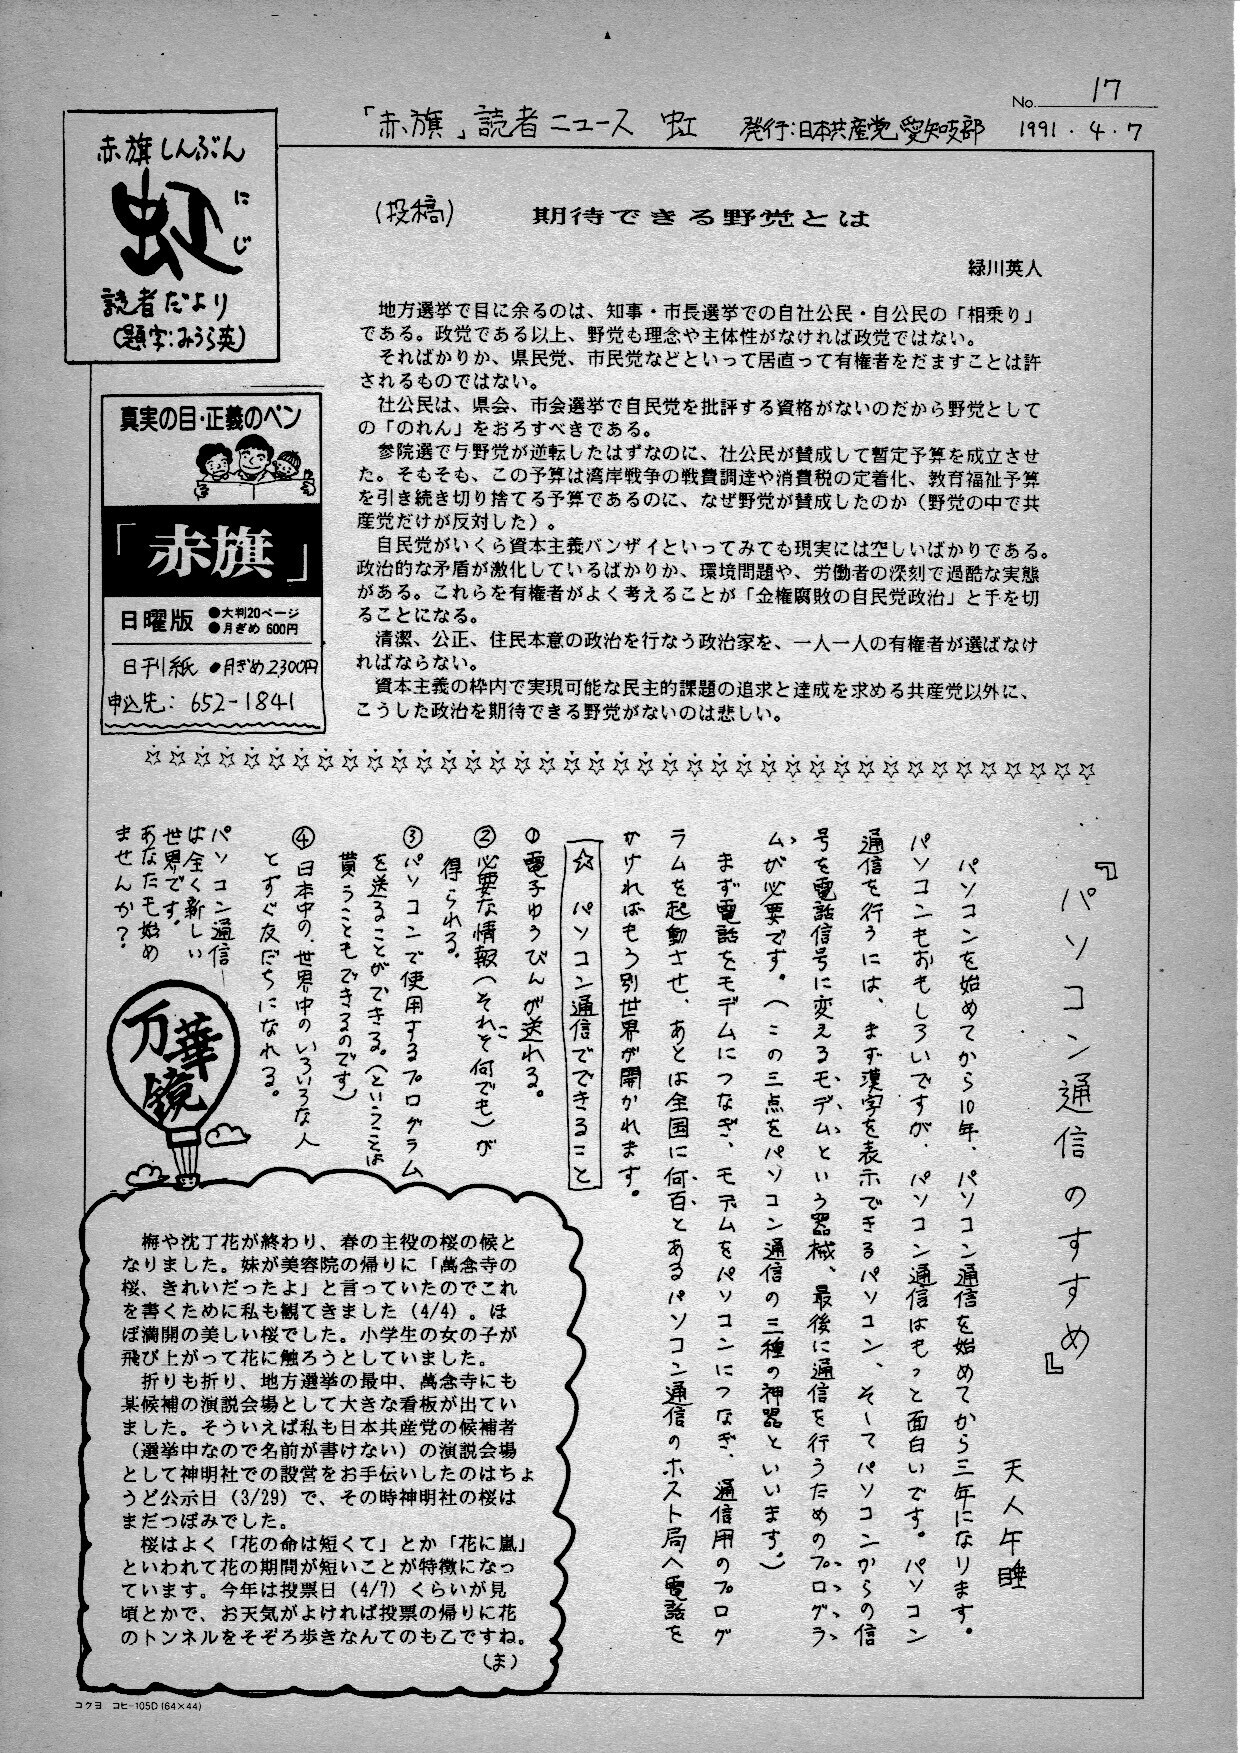 No. 17
「赤旗」読者ニュース 虹 発行:日本共産党愛知岐部 1991.4.7
赤旗しんぶん
虹
にじ
読者だより
(題字:みうら英)
真実の目・正義のペン
「赤旗」
日曜版 ●大判20ページ
●月ぎめ 600円
日刊紙 ●月ぎめ2,300円
申込先: 652-1841
(投稿) 期待できる野党とは
緑川英人
地方選挙で目に余るのは、知事・市長選挙での自社公民・自公民の「相乗り」
である。政党である以上、野党も理念や主体性がなければ政党ではない。
そればかりか、県民党、市民党などといって居直って有権者をだますことは許
されるものではない。
社公民は、県会、市会選挙で自民党を批評する資格がないのだから野党として
の「のれん」をおろすべきである。
参院選で与野党が逆転したはずなのに、社公民が賛成して暫定予算を成立させ
た。そもそも、この予算は湾岸戦争の戦費調達や消費税の定着化、教育福祉予算
を引き続き切り捨てる予算であるのに、なぜ野党が賛成したのか（野党の中で共
産党だけが反対した）。
自民党がいくら資本主義バンザイといってみても現実には空しいばかりである。
政治的な矛盾が激化しているばかりか、環境問題や、労働者の深刻で過酷な実態
がある。これらを有権者がよく考えることが「金権腐敗の自民党政治」と手を切
ることになる。
清潔、公正、住民本意の政治を行なう政治家を、一人一人の有権者が選ばなけ
ればならない。
資本主義の枠内で実現可能な民主的課題の追求と達成を求める共産党以外に、
こうした政治を期待できる野党がないのは悲しい。
☆☆☆☆☆☆☆☆☆☆☆☆☆☆☆☆☆☆☆☆☆☆☆☆☆☆☆☆☆☆☆☆☆☆☆☆☆☆☆
『パソコン通信のすすめ』
天人午睡
パソコンを始めてから10年、パソコン通信を始めてから三年になります。
パソコンもおもしろいですが、パソコン通信はもっと面白いです。パソコン
通信を行うには、まず漢字を表示できるパソコン、そしてパソコンからの信
号を電話信号に変えるモデムという器械、最後に通信を行うためのプログラ
ムが必要です。(この三点をパソコン通信の三種の神器といいます。)
まず電話をモデムにつなぎ、モデムをパソコンにつなぎ、通信用のプログ
ラムを起動させ、あとは全国に何百とあるパソコン通信のホスト局へ電話を
かければもう別世界が開かれます。
☆ パソコン通信でできること
①電子ゆうびんが送れる。
②必要な情報(それこそ何でも)が
得られる。
③パソコンで使用するプログラム
を送ることができる。(ということは
貰うこともできるのです)
④日本中の、世界中のいろいろな人
とすぐ友だちになれる。
パソコン通信―
は全く新しい
世界です。
あなたも始め
ませんか?
万華鏡
梅や沈丁花が終わり、春の主役の桜の候と
なりました。妹が美容院の帰りに「萬念寺の
桜、きれいだったよ」と言っていたのでこれ
を書くために私も観てきました（4/4）。ほ
ぼ満開の美しい桜でした。小学生の女の子が
飛び上がって花に触ろうとしていました。
折りも折り、地方選挙の最中、萬念寺にも
某候補の演説会場として大きな看板が出てい
ました。そういえば私も日本共産党の候補者
（選挙中なので名前が書けない）の演説会場
として神明社での設営をお手伝いしたのはちょ
うど公示日（3/29）で、その時神明社の桜は
まだつぼみでした。
桜はよく「花の命は短くて」とか「花に嵐」
といわれて花の期間が短いことが特徴になっ
ています。今年は投票日（4/7）くらいが見
頃とかで、お天気がよければ投票の帰りに花
のトンネルをそぞろ歩きなんてのも乙ですね。
(ま)
コクヨ コヒ-105D(64×44)